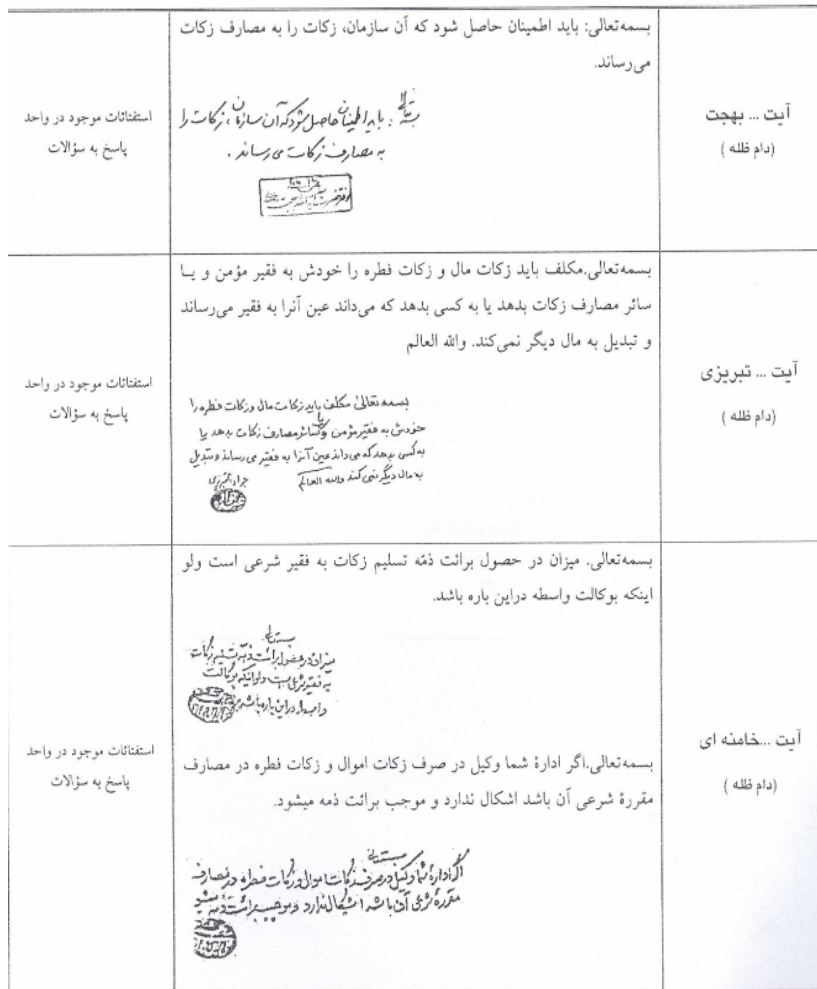 آیت ... بهجت
(دام ظله )
بسمه‌تعالی: باید اطمینان حاصل شود که آن سازمان، زکات را به مصارف زکات
می‌رساند.
بسمه تعالی : باید اطمینان حاصل شود که آن سازمان، زکات را
به مصارف زکات می رساند .
استفتائات موجود در واحد
پاسخ به سؤالات
آیت ... تبریزی
(دام ظله )
بسمه‌تعالی.مکلف باید زکات مال و زکات فطره را خودش به فقیر مؤمن و یا
سائر مصارف زکات بدهد یا به کسی بدهد که می‌داند عین آنرا به فقیر می‌رساند
و تبدیل به مال دیگر نمی‌کند. والله العالم
بسمه تعالیٰ مکلف باید زکات مال و زکات فطره را
خودش به فقیر مؤمن و یا سائر مصارف زکات بدهد یا
به کسی بدهد که می داند عین آنرا به فقیر می رساند و تبدیل
به مال دیگر نمی کند والله العالم
استفتائات موجود در واحد
پاسخ به سؤالات
آیت ...خامنه ای
(دام ظله )
بسمه‌تعالی. میزان در حصول برائت ذمّه تسلیم زکات به فقیر شرعی است ولو
اینکه بوکالت واسطه دراین باره باشد.
بسمه تعالی
میزان در حصول برائت ذمّه تسلیم زکات
به فقیر شرعی است ولو اینکه بوکالت
واسطه در این باره باشد
بسمه‌تعالی.اگر ادارهٔ شما وکیل در صرف زکات اموال و زکات فطره در مصارف
مقررهٔ شرعی آن باشد اشکال ندارد و موجب برائت ذمه میشود.
بسمه تعالی
اگر ادارهٔ شما وکیل در صرف زکات اموال و زکات فطره در مصارف
مقررهٔ شرعی آن باشد اشکال ندارد و موجب برائت ذمه میشود
استفتائات موجود در واحد
پاسخ به سؤالات